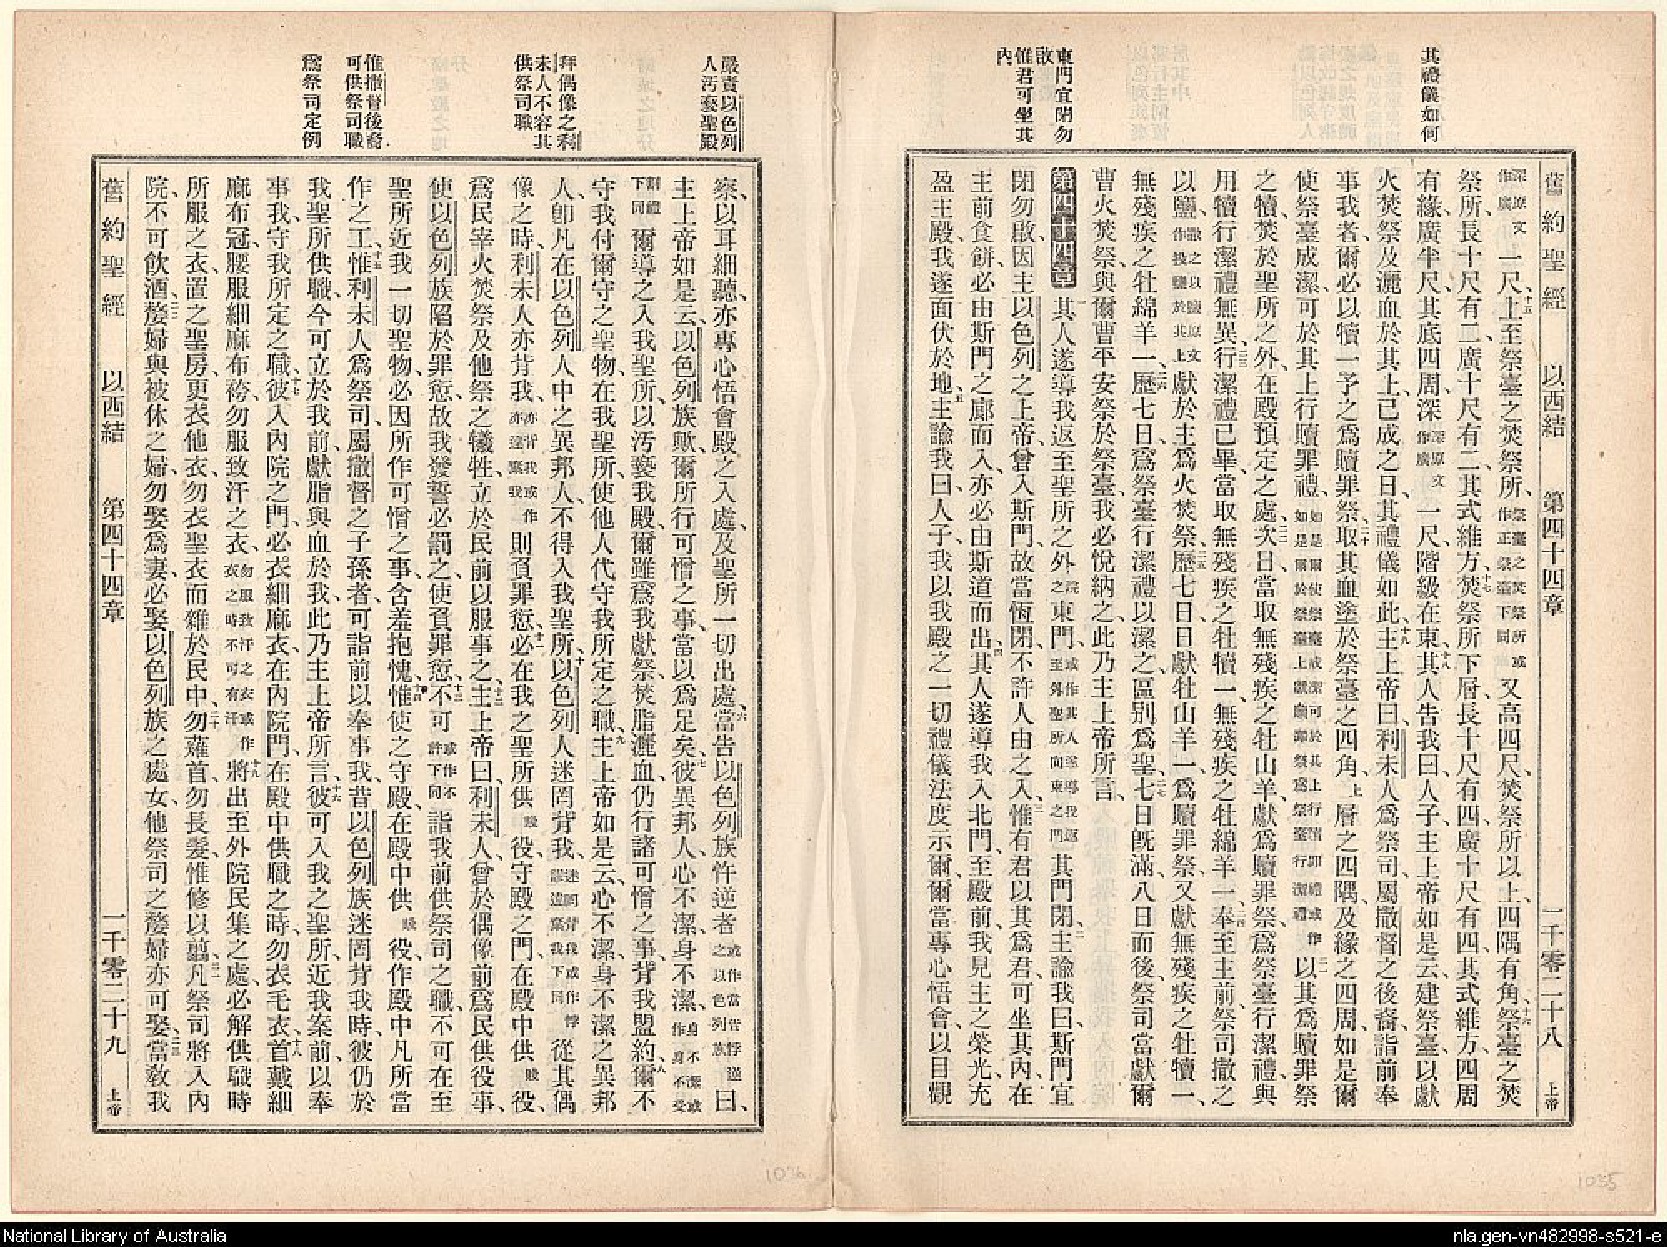 其禮儀如何
東門宜閉勿
啟
惟君可坐其
內
舊約聖經 以西結 第四十四章 一千零二十八 上帝
深原文作廣一尺、上至祭臺之焚祭所、祭臺之焚祭所或作正祭臺下同又高四尺、焚祭所以上、四隅有角、祭臺之焚
祭所、長十尺有二、廣十尺有二、其式維方、焚祭所下層、長十尺有四、廣十尺有四、其式維方、四周
有緣、廣半尺、其底四周、深深原文作廣一尺、階級在東、其人告我曰、人子、主上帝如是云、建祭臺、以獻
火焚祭、及灑血於其上、已成之日、其禮儀如此、主上帝曰、利未人為祭司、屬撒督之後裔、詣前奉
事我者、爾必以犢一予之、為贖罪祭、取其血塗於祭臺之四角、上層之四隅、及緣之四周、如是爾
使祭臺成潔、可於其上行贖罪禮、以其為贖罪祭
之犢、焚於聖所之外、在殿預定之處、次日當取無殘疾之牡山羊、獻為贖罪祭、為祭臺行潔禮、與
用犢行潔禮無異、行潔禮已畢、當取無殘疾之牡犢一、無殘疾之牡綿羊一、奉至主前、祭司撒之
以鹽、獻於主為火焚祭、歷七日、日獻牡山羊一、為贖罪祭、又獻無殘疾之牡犢一、
無殘疾之牡綿羊一、歷七日、為祭臺行潔禮以潔之、區別為聖、七日既滿、八日而後、祭司當獻爾
曹火焚祭、與爾曹平安祭於祭臺、我必悅納之、此乃主上帝所言、
第四十四章 其人遂導我返至聖所之外院之東門、或作其人遂導我返至外聖所向東之門其門閉、主諭我曰、斯門宜
閉勿啟、因主以色列之上帝、曾入斯門、故當恆閉、不許人由之入、惟有君以其為君、可坐其內、在
主前食餅、必由斯門之廊而入、亦必由斯道而出、其人遂導我入北門、至殿前、我見主之榮光充
盈主殿、我遂面伏於地、主諭我曰、人子、我以我殿之一切禮儀法度示爾、爾當專心悟會、以目觀
嚴責以色列
人汚褻聖殿
拜偶像之利
未人不容其
供祭司職
惟撒督後裔
可供祭司職
為祭司定例
察、以耳細聽、亦專心悟會殿之入處、及聖所一切出處、當告以色列族忤逆者或作當告悖逆之以色列族曰、
主上帝如是云、以色列族歟、爾所行可憎之事、當以為足矣、彼異邦人、心不潔、身不潔、身不潔或作身不受
割禮下同爾導之入我聖所、以汚褻我殿、爾雖為我獻祭、焚脂灑血、仍行諸可憎之事、背我盟約、爾不
守我付爾守之聖物、在我聖所、使他人代守我所定之職、主上帝如是云、心不潔、身不潔之異邦
人、卽凡在以色列人中之異邦人、不得入我聖所、以色列人迷罔背我、從其偶
像之時、利未人亦背我、亦背我或作亦違棄我則負罪愆、必在我之聖所供賤役、守殿之門、在殿中供賤役、
為民宰火焚祭及他祭之犧牲、立於民前以服事之、主上帝曰、利未人曾於偶像前為民供役事、
使以色列族陷於罪愆、故我發誓必罰之、使負罪愆、不可或作不許下同詣我前供祭司之職、不可在至
聖所近我一切聖物、必因所作可憎之事、含羞抱愧、惟使之守殿、在殿中供賤役、作殿中凡所當
作之工、惟利未人為祭司、屬撒督之子孫者、可詣前以奉事我、昔以色列族迷罔背我時、彼仍於
我聖所供職、今可立於我前、獻脂與血於我、此乃主上帝所言、彼可入我之聖所、近我案前、以奉
事我、守我所定之職、彼入內院之門、必衣細麻衣、在內院門、在殿中供職之時、勿衣毛衣、首戴細
麻布冠、腰服細麻布袴、勿服致汗之衣、勿服致汗之衣或作衣之時不可有汗將出至外院民集之處、必解供職時
所服之衣、置之聖房、更衣他衣、勿衣聖衣而雜於民中、勿薙首、勿長髮、惟修以翦、凡祭司將入內
院、不可飲酒、嫠婦與被休之婦、勿娶為妻、必娶以色列族之處女、他祭司之嫠婦亦可娶、當敎我
舊約聖經 以西結 第四十四章 一千零二十九 上帝
1036
1035
National Library of Australia
nla.gen-vn482998-s521-e